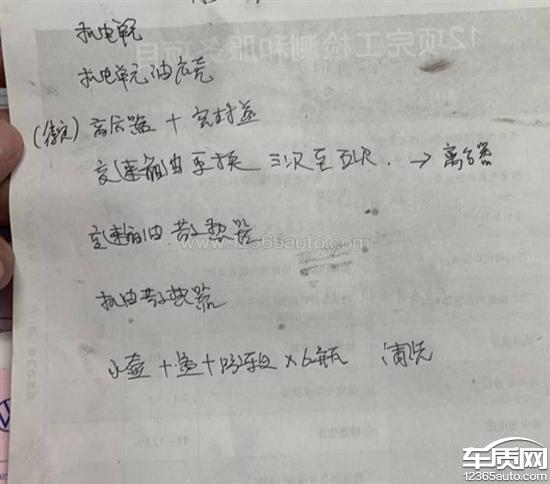 机电单元
机电单元油底壳
(待定) 离合器 + 密封盖
变速箱油更换 三次至五次. → 离合器
变速箱油散热器
机油散热器
小壶 + 壶 + × 6瓶 清洗
12项完工检测和服务项目
www.12365auto.com
车质网
12365auto.com